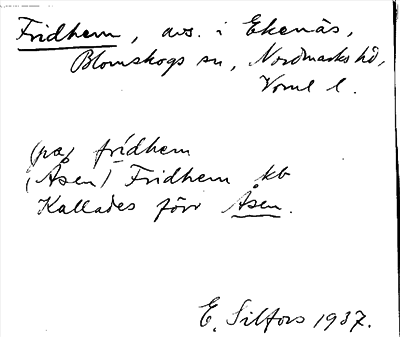 Fridhem, avs. i Ekenäs,
Blomskogs sn, Nordmarks hd,
Vrml l.
(på) frídhem
(Åsen) Fridhem kb
Kallades förr Åsen.
E. Silfors 1937.